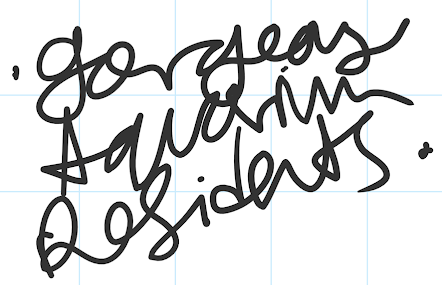 gorgeas
Aquarim
Residents